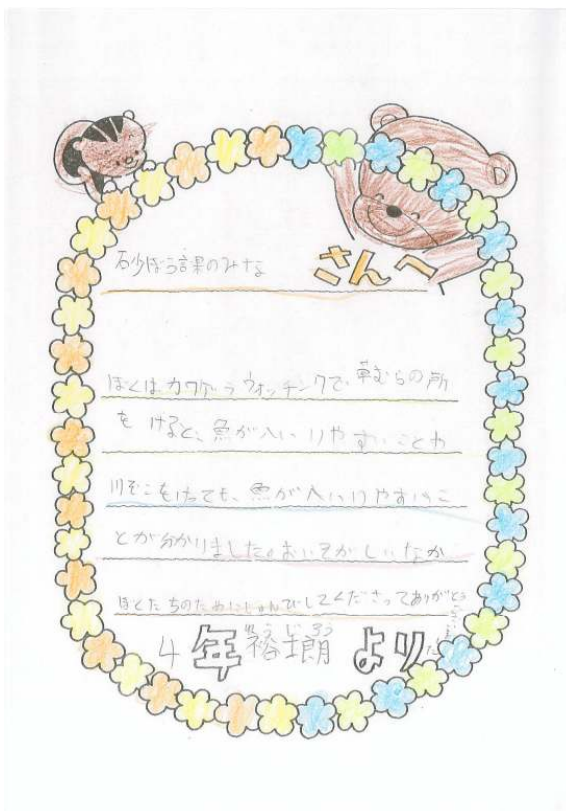 砂ぼう課のみな さんへ
ぼくは、カワゲラウォッチングで、草むらの所
を けると、魚が入いりやすいことや
川ぞこをけっても、魚が入いりやすいこ
とが分かりました。おいそがしいなか
ぼくたちのためにじゅんびしてくださってありがとう
4 年 より